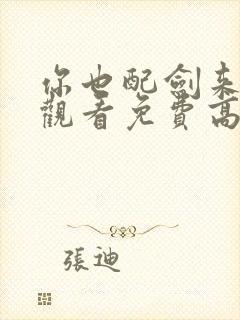 你也配劍來
觀看免費高
張迪